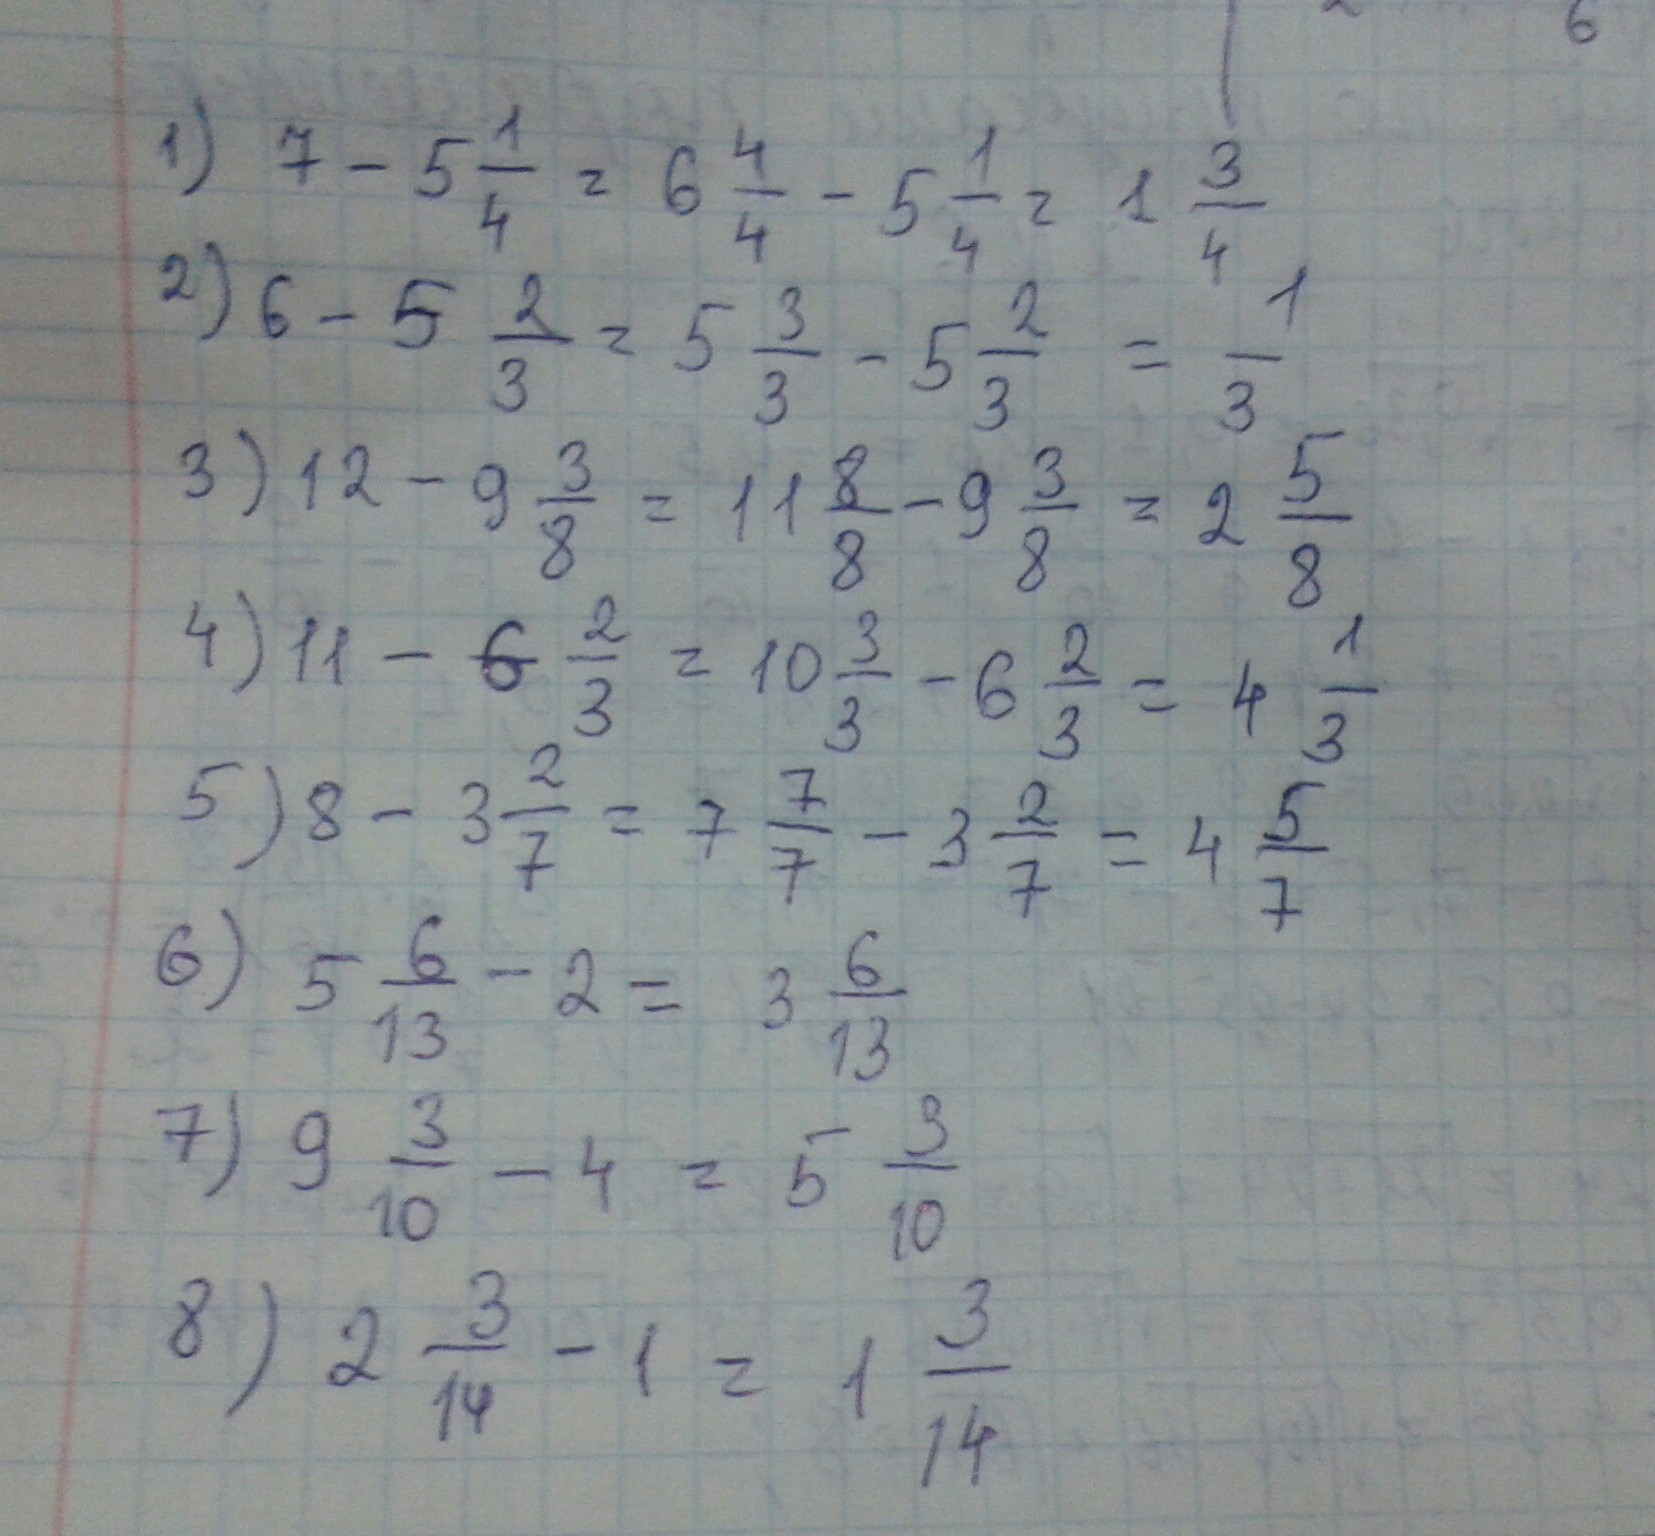 6
1) 7 - 5 1/4 = 6 4/4 - 5 1/4 = 1 3/4
2) 6 - 5 2/3 = 5 3/3 - 5 2/3 = 1/3
3) 12 - 9 3/8 = 11 8/8 - 9 3/8 = 2 5/8
4) 11 - 6 2/3 = 10 3/3 - 6 2/3 = 4 1/3
5) 8 - 3 2/7 = 7 7/7 - 3 2/7 = 4 5/7
6) 5 6/13 - 2 = 3 6/13
7) 9 3/10 - 4 = 5 3/10
8) 2 3/14 - 1 = 1 3/14